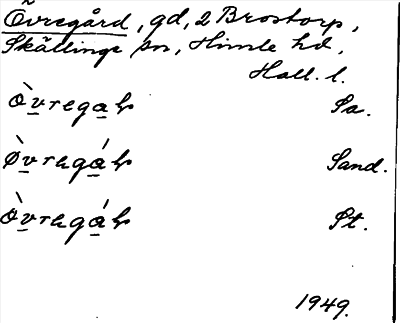 Övregård, gd, 2 Brostorp,
Skällinge sn, Himle hd,
Hall. l.
Sa.
Sand.
St.
1949.